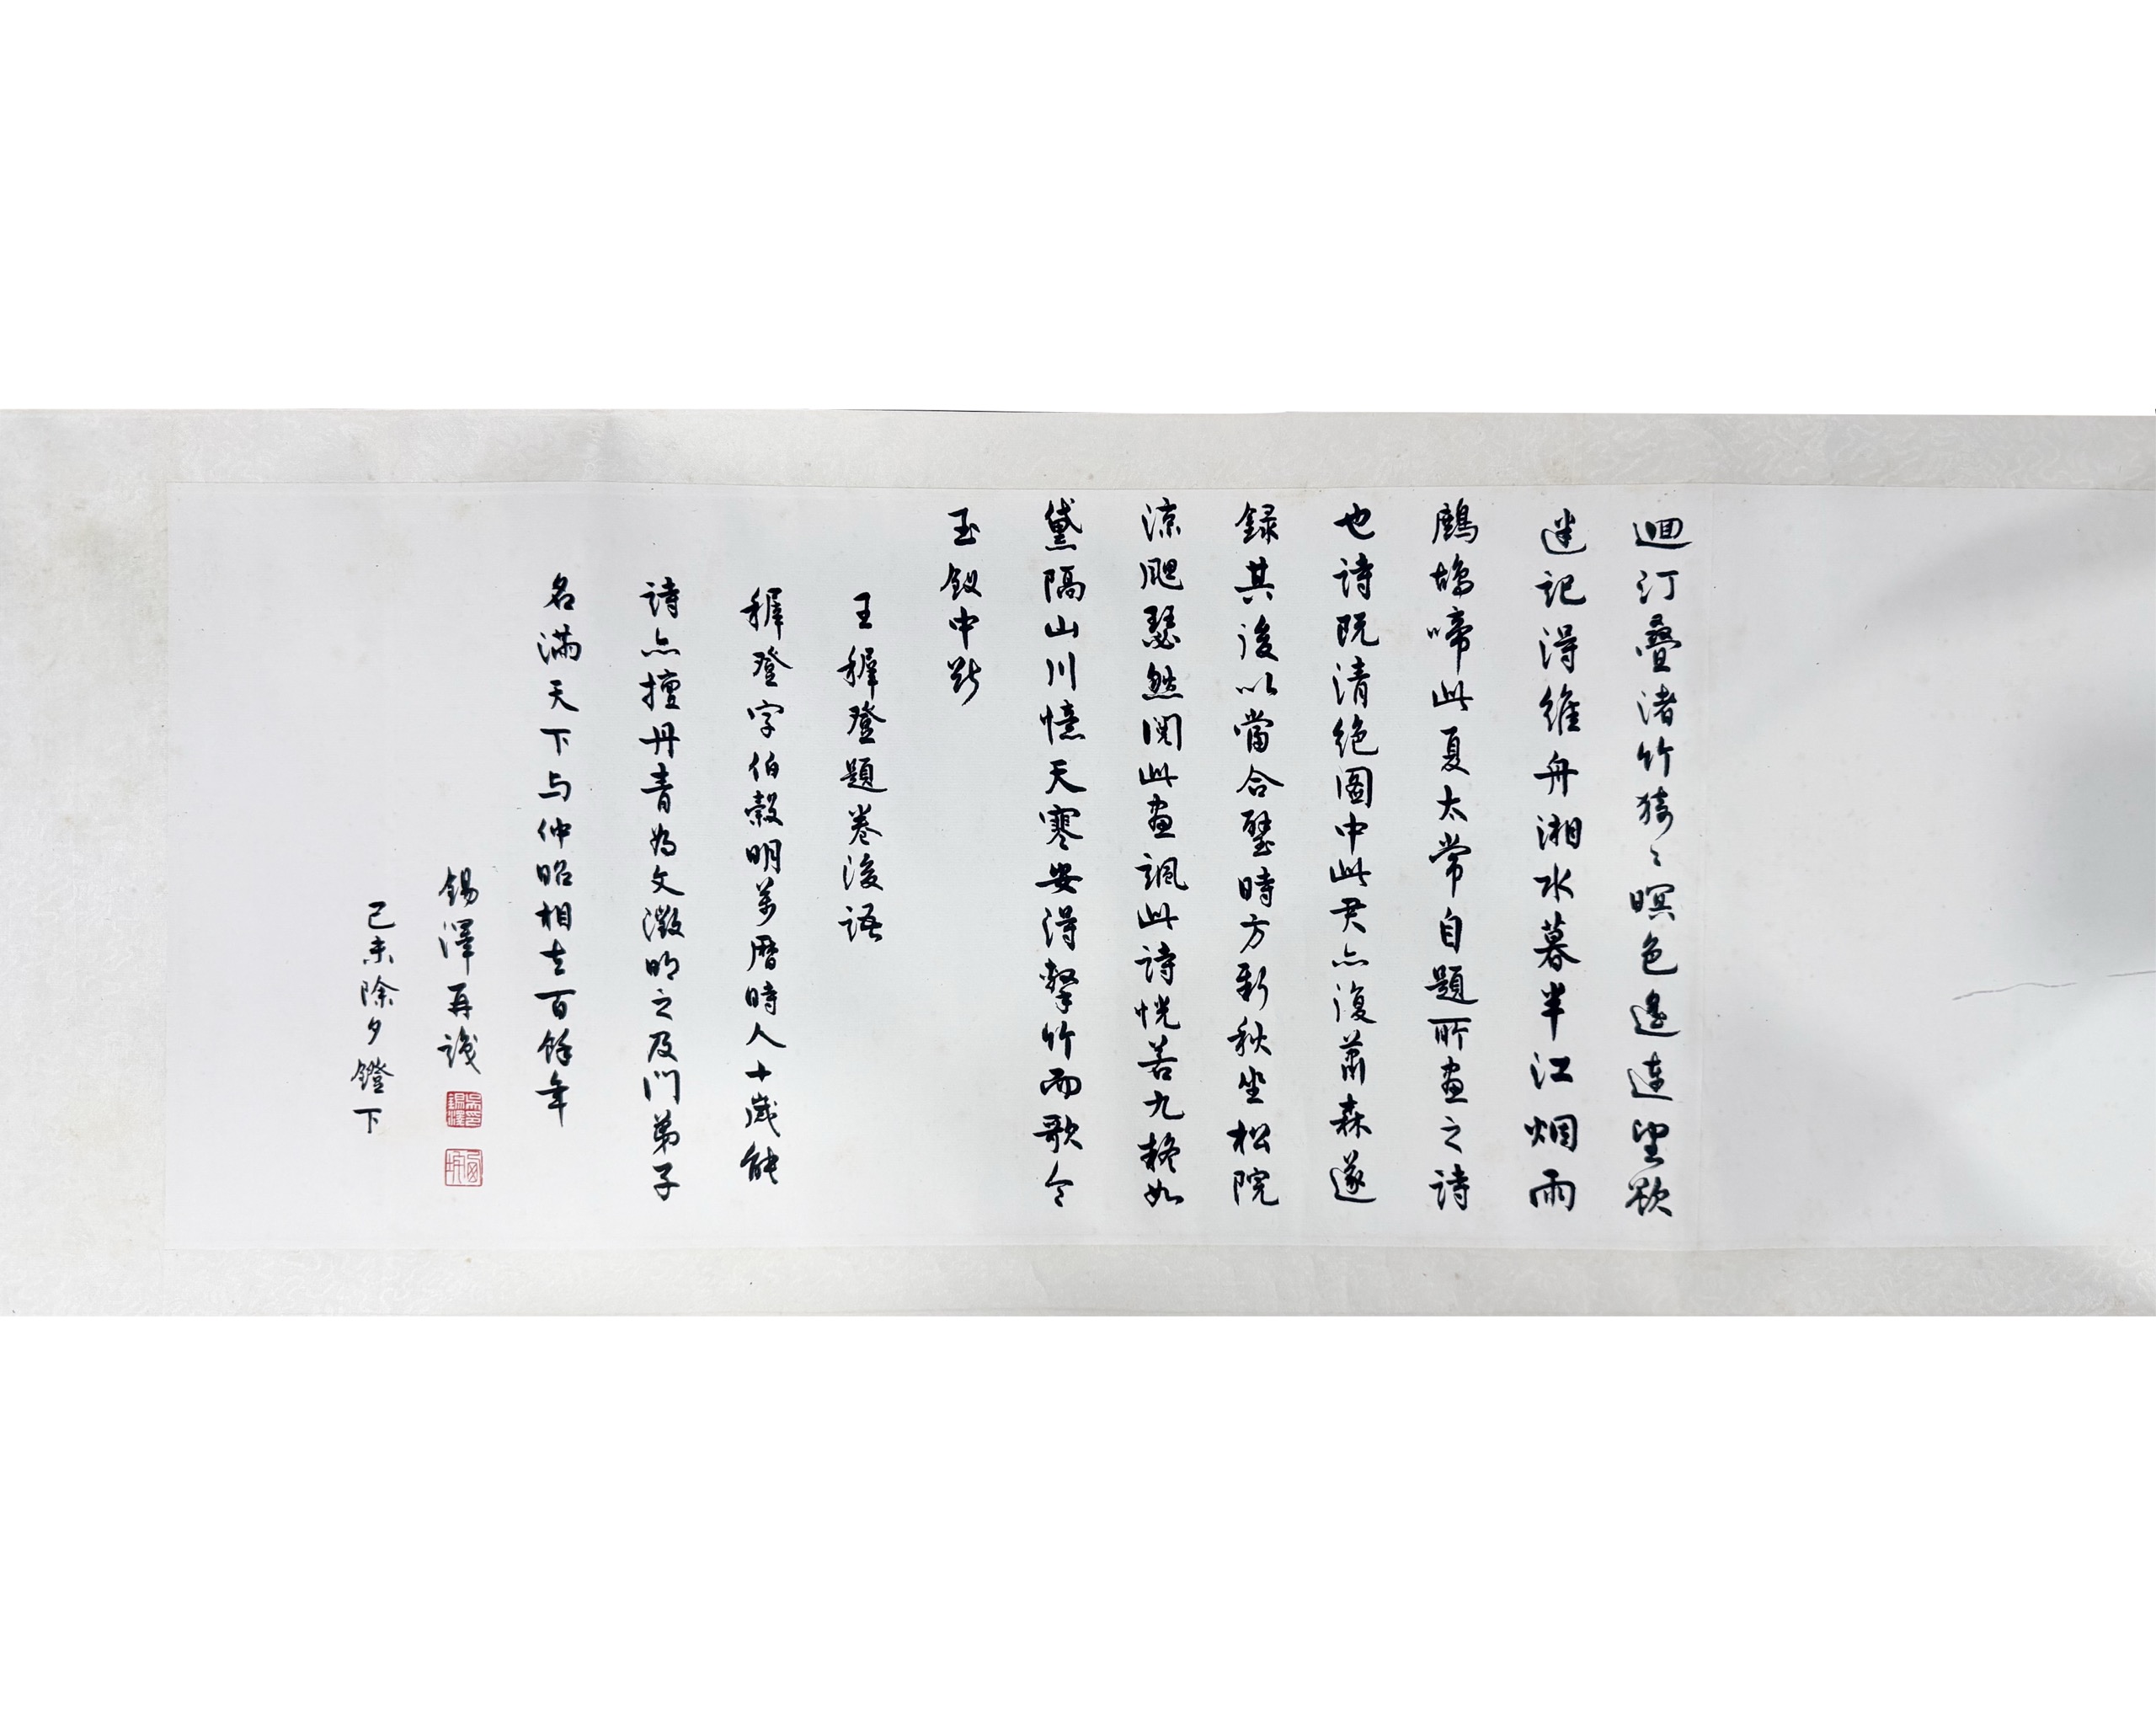 迴汀疊渚竹猗〻暝色遙連望欲
迷記得維舟湘水暮半江烟雨
鷓鴣啼此夏太常自題所畫之詩
也詩既清絕圖中此君亦復蕭森遂
錄其後以當合璧時方新秋坐松院
涼颸瑟然閱此畫諷此詩恍若九疑如
黛隔山川憶天寒安得擊竹而歌令
玉釵中斷
王穉登題卷後語
穉登字伯穀明萬曆時人十歲能
詩亦擅丹青為文徵明之及門弟子
名滿天下与仲昭相去百餘年
錫澤再識
己未除夕鐙下
吳錫澤印